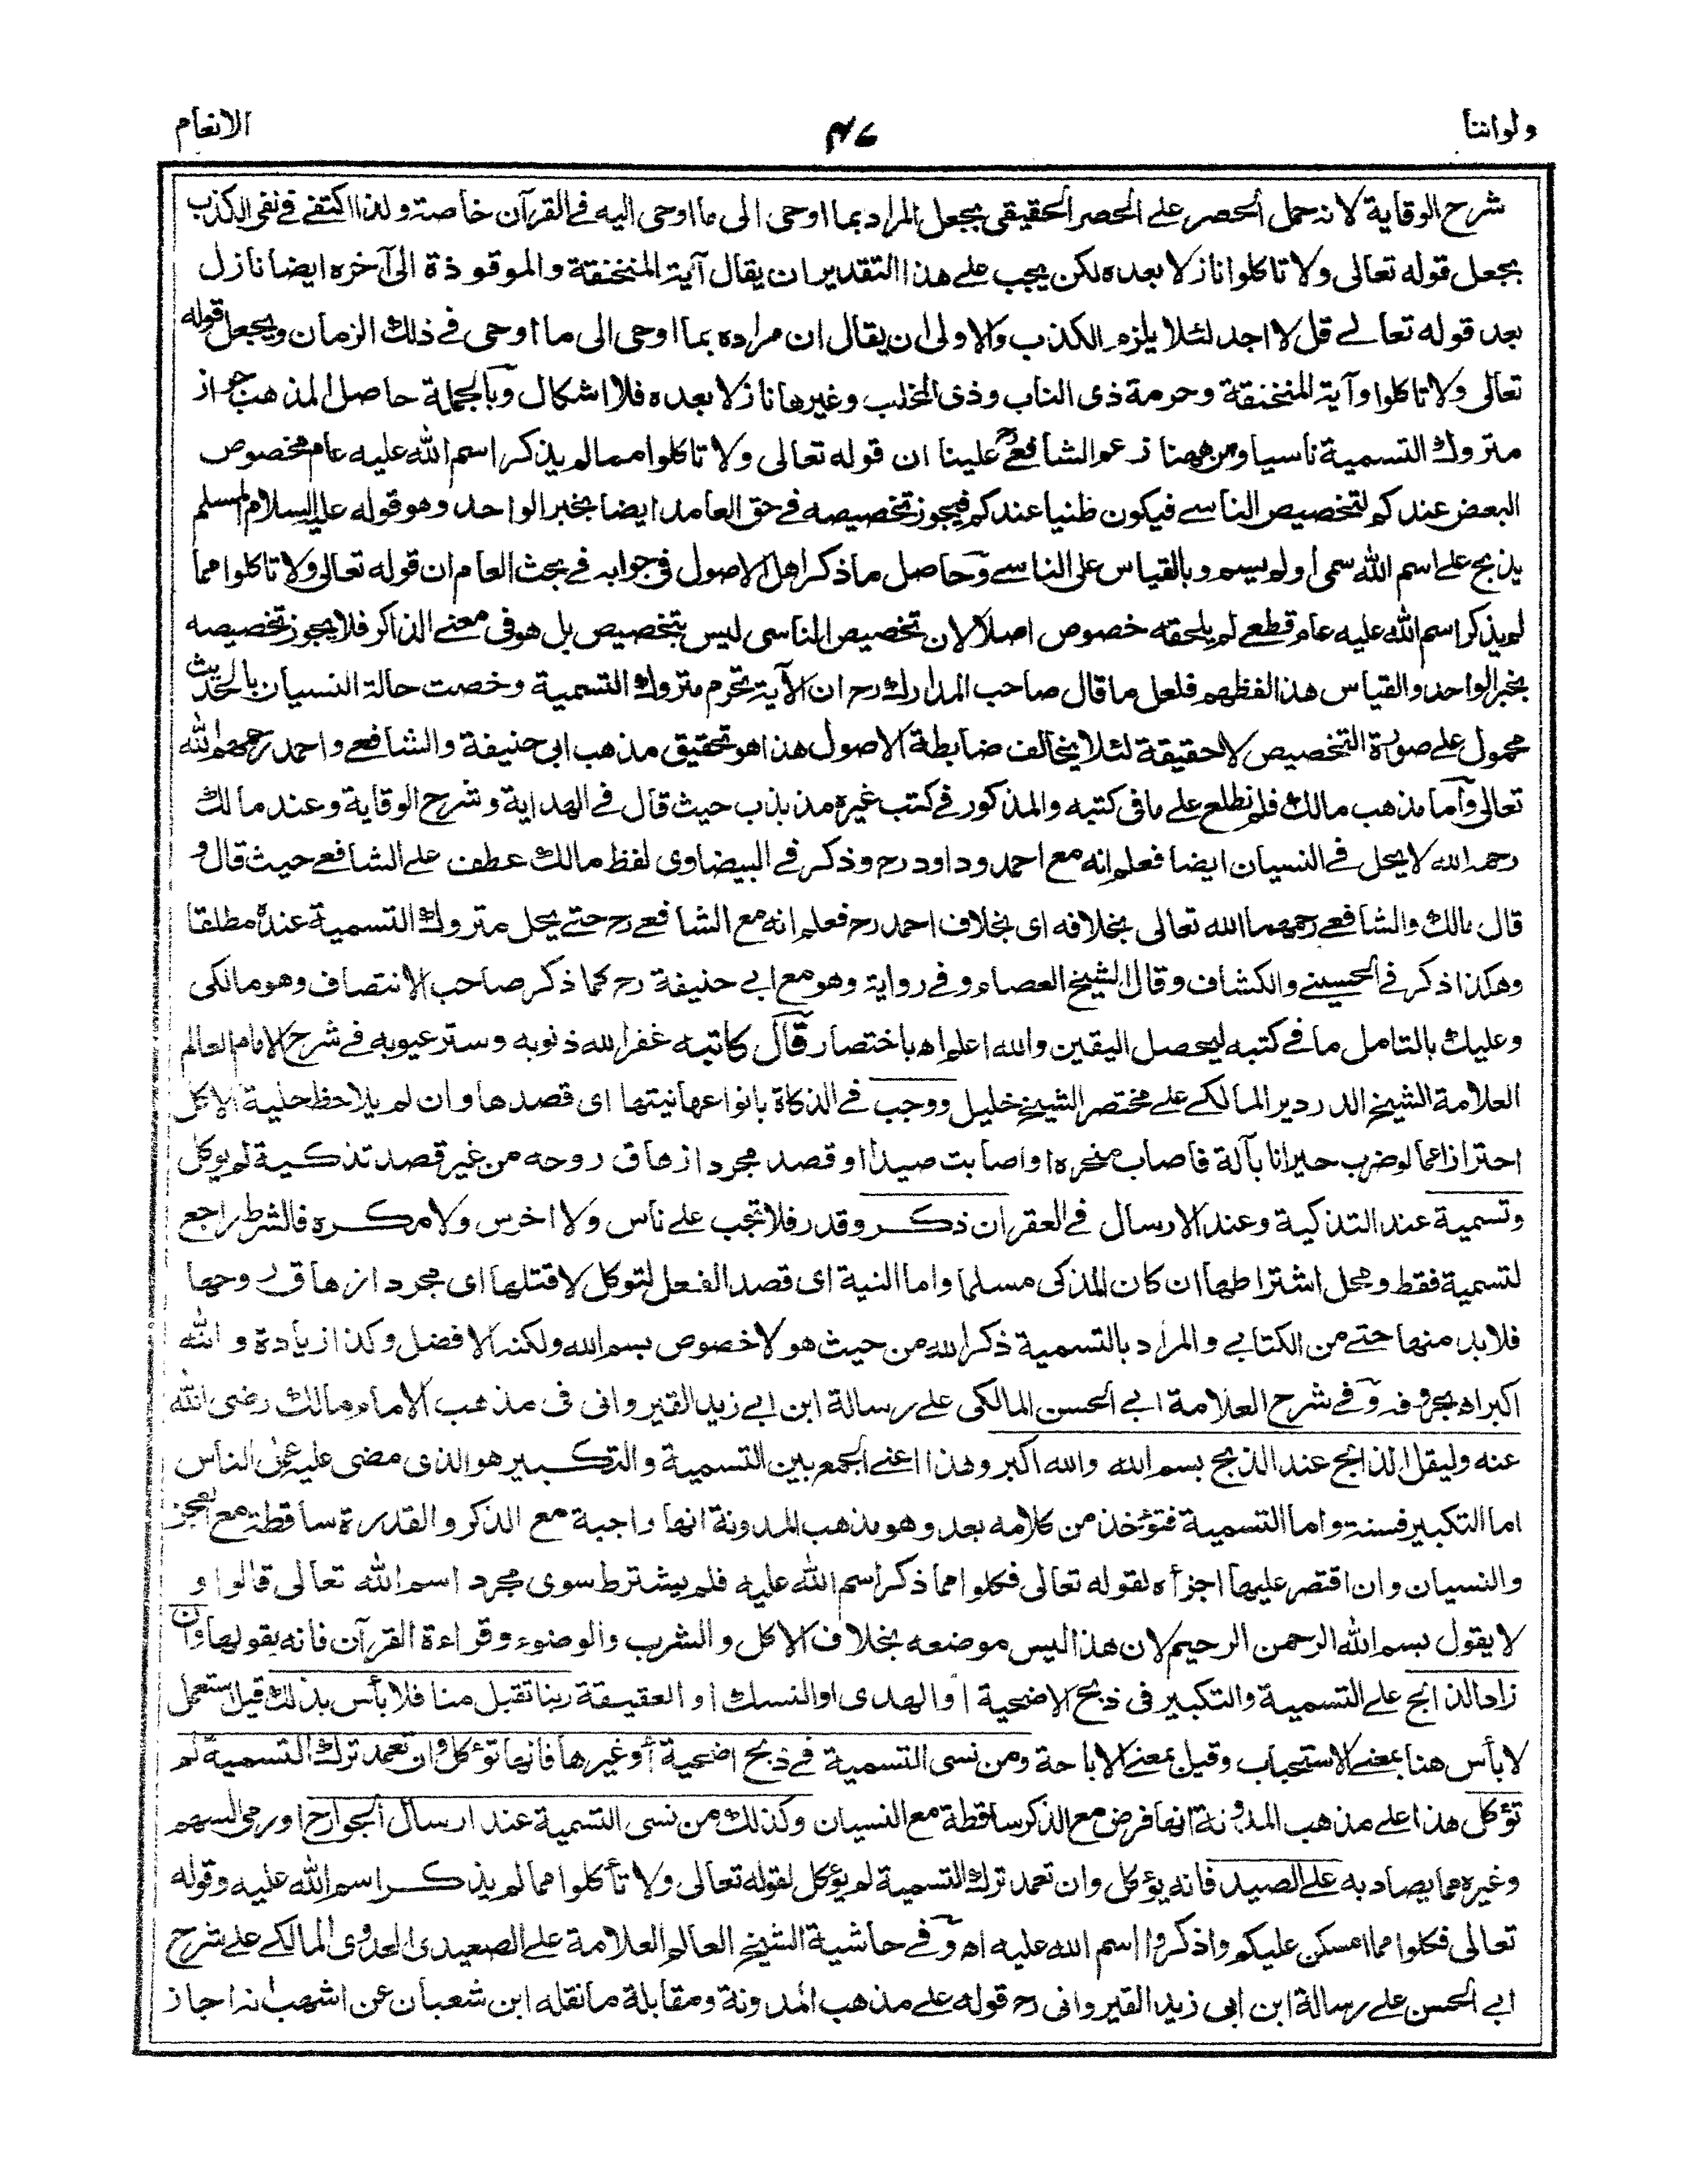 ولواننا
٤٧
الانعام
شرح الوقاية لانه حمل الحصر على الحصر الحقيقي بجعل المراد بما اوحى الى ما اوحى اليه في القرآن خاصة ولذا اكتفى في نفي الكذب
بجعل قوله تعالى ولا تاكلوا نازلا بعده لكن يجب على هذا التقدير ان يقال آية المنخنقة والموقوذة الى آخره ايضا نازل
بعد قوله تعالى قل لا اجد لئلا يلزم الكذب والاولى ان يقال ان مراده بما اوحى الى ما اوحى في ذلك الزمان ويجعل قوله
تعالى ولا تاكلوا وآية المنخنقة وحرمة ذى الناب وذى المخلب وغيرها نازلا بعده فلا اشكال وبالجملة حاصل المذهب جواز
متروك التسمية ناسيا ومن ههنا زعم الشافعي رح علينا ان قوله تعالى ولا تاكلوا مما لم يذكر اسم الله عليه عام مخصوص
البعض عندكم لتخصيص الناسي فيكون ظنيا عندكم فيجوز تخصيصه في حق العامد ايضا بخبر الواحد وهو قوله عليه السلام المسلم
يذبح على اسم الله سمى او لم يسم وبالقياس على الناسي وحاصل ما ذكر اهل الاصول في جوابه في بحث العام ان قوله تعالى ولا تاكلوا مما
لم يذكر اسم الله عليه عام قطعي لم يلحقه خصوص اصلا لان تخصيص الناسى ليس بتخصيص بل هو في معنى الذاكر فلا يجوز تخصيصه
بخبر الواحد والقياس هذا لفظهم فلعل ما قال صاحب المدارك رح ان الآية تحرم متروك التسمية وخصت حالة النسيان بالحديث
محمول على صورة التخصيص لا حقيقة لئلا يخالف ضابطة الاصول هذا هو تحقيق مذهب ابي حنيفة والشافعي واحمد رحمهم الله
تعالى وأما مذهب مالك فلم نطلع على ما في كتبه والمذكور في كتب غيره مذبذب حيث قال في الهداية وشرح الوقاية وعند مالك
رحمه الله لا يحل في النسيان ايضا فعلم انه مع احمد وداود رح وذكر في البيضاوى لفظ مالك عطف على الشافعي حيث قال و
قال مالك والشافعي رحمهما الله تعالى بخلافه اى بخلاف احمد رح فعلم انه مع الشافعي رح حتى يحل متروك التسمية عنده مطلقا
وهكذا ذكر في الحسيني والكشاف وقال الشيخ العصام وفي رواية وهو مع ابي حنيفة رح كما ذكر صاحب الانتصاف وهو مالكى
وعليك بالتامل ما في كتبه ليحصل اليقين والله اعلم اه باختصار قال كاتبه غفر الله ذنوبه وستر عيوبه في شرح الامام العالم
العلامة الشيخ الدردير المالكي على مختصر الشيخ خليل ووجب في الذكاة بانواعها نيتها اى قصدها وان لم يلاحظ حلية الاكل
احترازا عما لو ضرب حيوانا بآلة فاصاب منحره او اصابت صيدا او قصد مجرد ازهاق روحه من غير قصد تذكية لم يوكل
وتسمية عند التذكية وعند الارسال في العقر ان ذكر وقدر فلا تجب على ناس ولا اخرس ولا مكره فالشرط راجع
لتسمية فقط ومحل اشتراطها ان كان المذكى مسلما واما النية اى قصد الفعل لتوكل لا قتلها اى مجرد ازهاق روحها
فلا بد منها حتى من الكتابي والمراد بالتسمية ذكر الله من حيث هو لا خصوص بسم الله ولكنه الافضل وكذا زيادة والله
اكبر اه بحروفه وفي شرح العلامة ابي الحسن المالكى على رسالة ابن ابي زيد القيروانى فى مذهب الامام مالك رضى الله
عنه وليقل الذابح عند الذبح بسم الله والله اكبر وهذا اعنى الجمع بين التسمية والتكبير هو الذى مضى عليه عمل الناس
اما التكبير فسنة واما التسمية فتؤخذ من كلامه بعد وهو مذهب المدونة انها واجبة مع الذكر والقدرة ساقطة مع العجز
والنسيان وان اقتصر عليها اجزأه لقوله تعالى فكلوا مما ذكر اسم الله عليه فلم يشترط سوى مجرد اسم الله تعالى قالوا و
لا يقول بسم الله الرحمن الرحيم لان هذا ليس موضعه بخلاف الاكل والشرب والوضوء وقراءة القرآن فانه يقولها وان
زاد الذابح على التسمية والتكبير فى ذبح الاضحية أو الهدى او النسك او العقيقة ربنا تقبل منا فلا بأس بذلك قيل يستعمل
لا بأس هنا بمعنى الاستحباب وقيل بمعنى الاباحة ومن نسى التسمية في ذبح اضحية أو غيرها فانها تؤكل وان تعمد ترك التسمية لم
تؤكل هذا على مذهب المدونة انها فرض مع الذكر ساقطة مع النسيان وكذلك من نسى التسمية عند ارسال الجوارح او رمى السهم
وغيره مما يصاد به على الصيد فانه يؤكل وان تعمد ترك التسمية لم يؤكل لقوله تعالى ولا تأكلوا مما لم يذكر اسم الله عليه وقوله
تعالى فكلوا مما امسكن عليكم واذكروا اسم الله عليه اه وفي حاشية الشيخ العالم العلامة على الصعيدى العدوى المالكي على شرح
ابي الحسن على رسالة ابن ابى زيد القيروانى رح قوله على مذهب المدونة ومقابلة ما نقله ابن شعبان عن اشهب انه اجاز